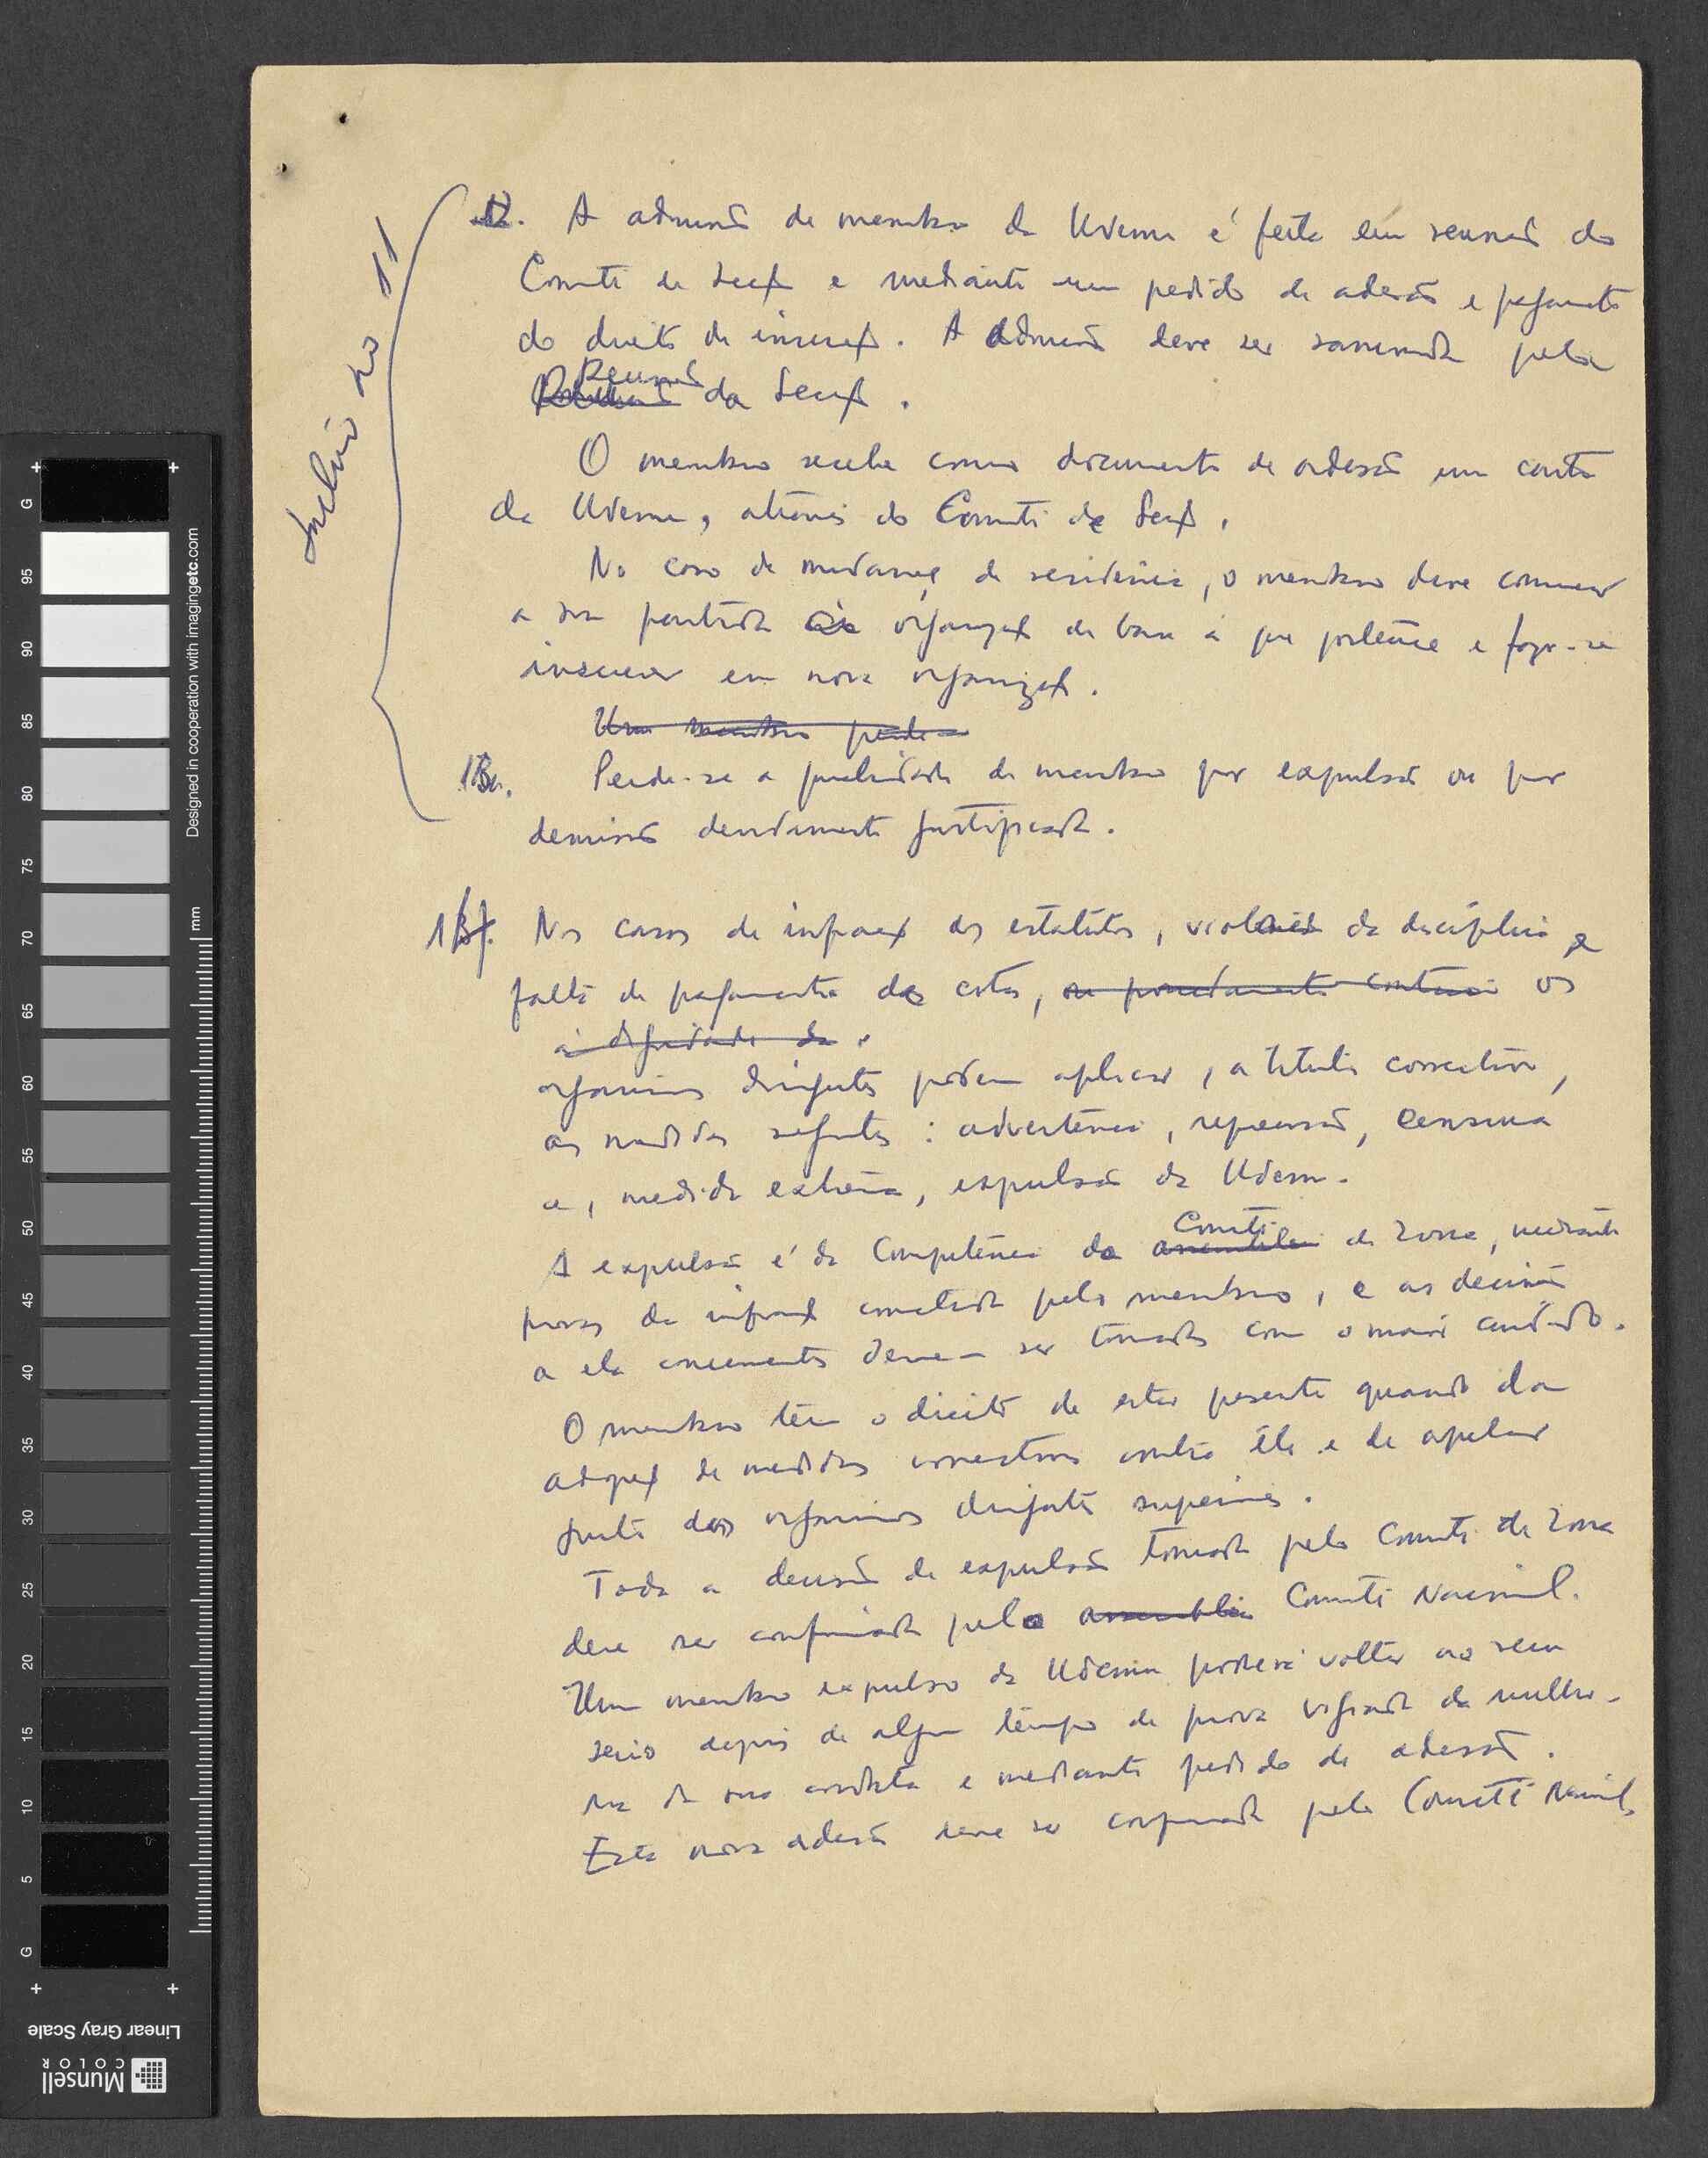 Incluir no 11
12. A admissão de membro da Udemu é feita em reunião do
Comité de Secção e mediante um pedido de adesão e pagamento
do direito de inscrição. A admissão deve ser sancionada pela
Reunião da Secção.
O membro recebe como documento de adesão um cartão
da Udemu, através do Comité de Secção.
No caso de mudança de residência, o membro deve comunicar
a sua partida à organização de base a que pertence e fazer-se
inscrever em nova organização.
Um membro perde
13. Perde-se a qualidade de membro por expulsão ou por
demissão devidamente justificada.
Nos casos de infracção dos estatutos, violação da disciplina e
falta de pagamento das cotas, ou procedimento contrário os
à dignidade da
organismos dirigentes podem aplicar, a título correctivo,
as medidas seguintes: advertência, repreensão, censura
e, medida extrema, expulsão da Udemu.
A expulsão é da competência do Comité assembleia de Zona, mediante
provas da infracção cometida pelo membro, e as decisões
a ela concernentes devem ser tomadas com o maior cuidado.
O membro tem o direito de estar presente quando da
adopção de medidas correctivas contra êle e de apelar
junto dos organismos dirigentes superiores.
Toda a decisão de expulsão tomada pelo Comité de Zona
deve ser confirmada pelo assembleia Comité Nacional.
Um membro expulso da Udemu poderá voltar ao seu
seio depois de algum tempo de prova da melho-
ria da sua conduta e mediante pedido de adesão.
Esta nova adesão deve ser confirmada pelo Comité Nacional
G 95 90 85 80 75 70 65 60 55 50 45 40 35 30 25 20 15 10 5 G
mm
Designed in cooperation with imagingetc.com
Linear Gray Scale
Munsell
COLOR